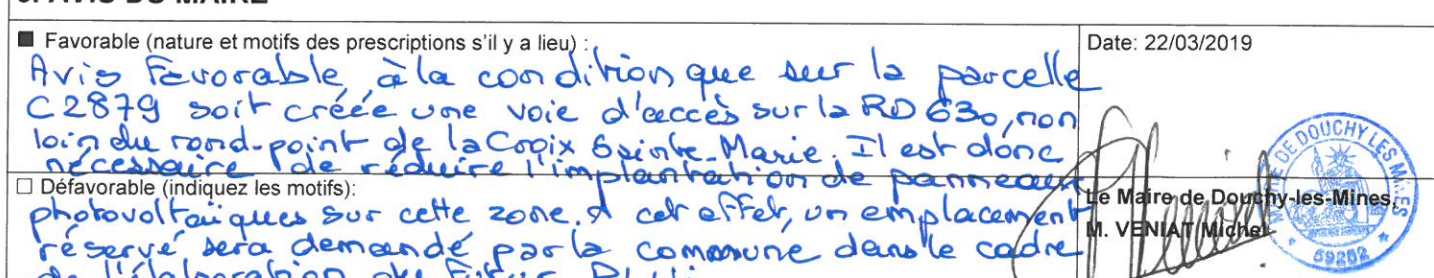 3. AVIS DU MAIRE
■ Favorable (nature et motifs des prescriptions s'il y a lieu) :
Date: 22/03/2019
Avis Favorable, à la condition que sur la parcelle
C2879 soit créée une voie d'accès sur la RD 630, non
loin du rond-point de la Croix Sainte-Marie. Il est donc
nécessaire de réduire l'implantation de panneaux
□ Défavorable (indiquez les motifs):
photovoltaïques sur cette zone. A cet effet, un emplacement
réservé sera demandé par la commune dans le cadre
de l'élaboration du futur PLUi
Le Maire de Douchy-les-Mines,
M. VENIAT Michel
MAIRIE DE DOUCHY LES MINES
59282